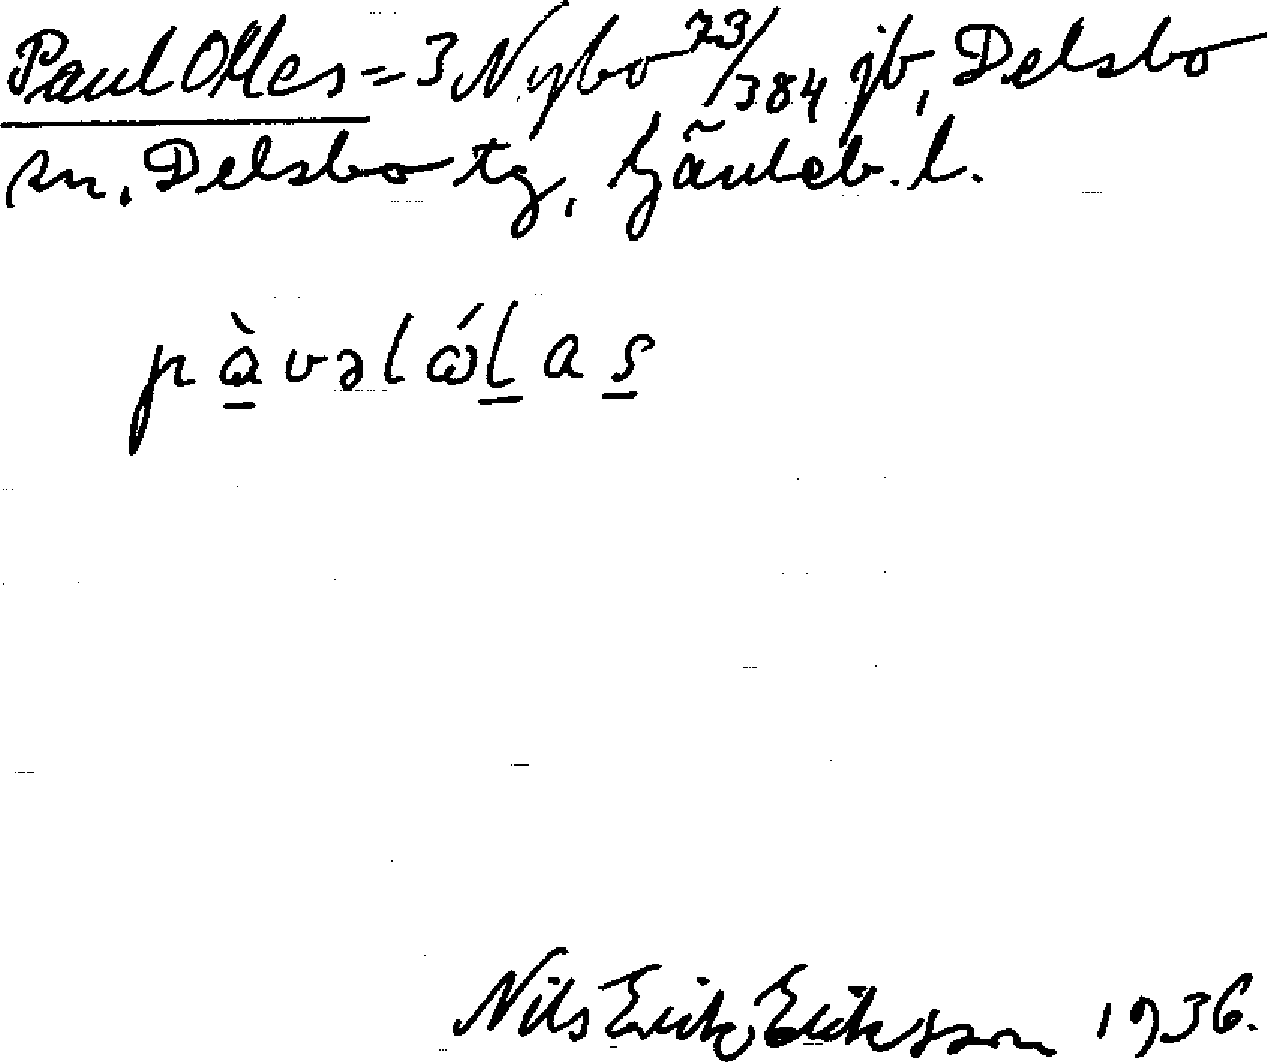 Paul Olles = 3 Nybo 73/384 jb, Delsbo
sn, Delsbo tg, Gävleb. l.
pàvəlól̠as̠
Nils Erik Eriksson 1936.